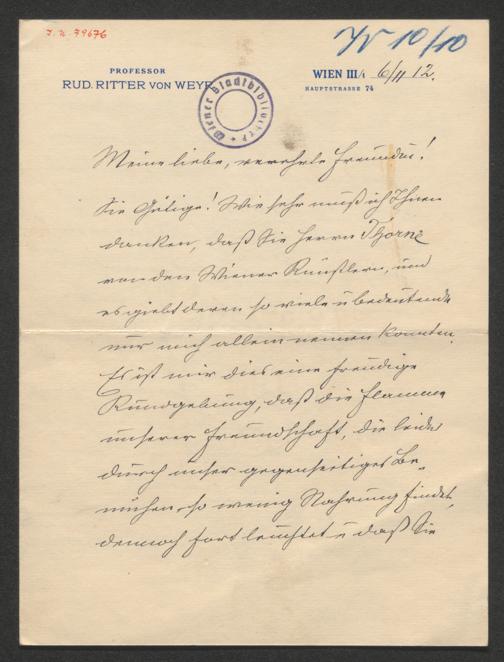 J. N. 79676
IV 10/10
PROFESSOR
RUD. RITTER VON WEYR
WIEN III/1 6/11 12.
HAUPTSTRASSE 74
Wiener Stadtbibliothek
Meine liebe, verehrte Freundin!
Sie Gütige! Wie sehr muß ich Ihnen
danken, daß Sie Herrn Thorne
von den Wiener Künstlern, und
es giebt deren so viele u bedeutende
nur mich allein nennen konnten.
Es ist mir dies eine freudige
Kundgebung, daß die Flamme
unserer Freundschaft, die leider
durch unser gegenseitiges Be-
mühen so wenig Nahrung findet,
dennoch fort leuchtet u daß Sie